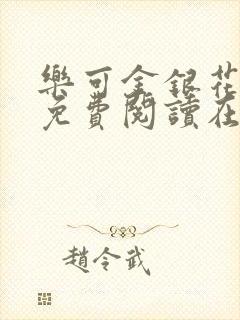 樂可金銀花
免費閱讀在
趙令武